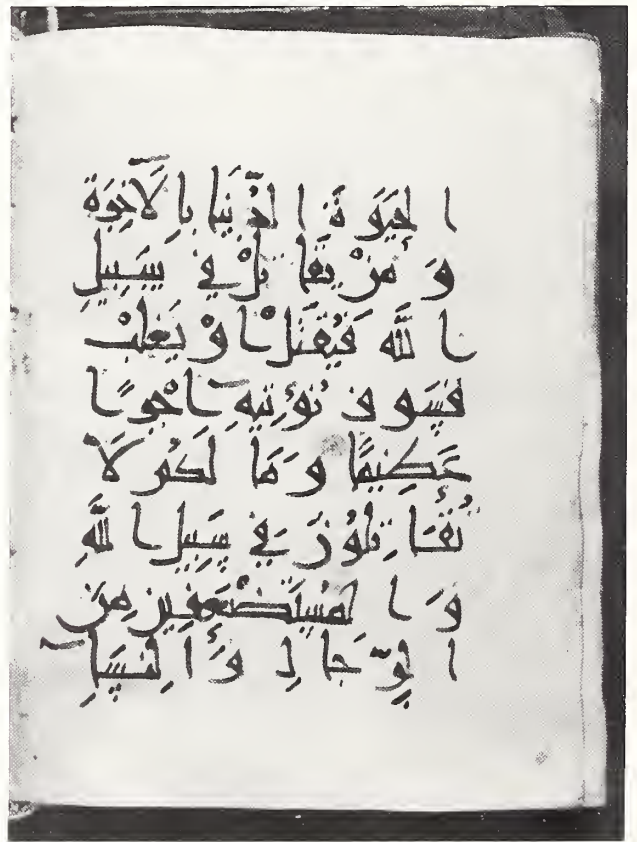 الْحَيَوةَ الدُّنْيَا بِالْآخِرَةِ
وَمَنْ يُقَاتِلْ فِي سَبِيلِ
اللَّهِ فَيُقْتَلْ أَوْ يَغْلِبْ
فَسَوْفَ نُؤْتِيهِ أَجْرًا
عَظِيمًا وَمَا لَكُمْ لَا
تُقَاتِلُونَ فِي سَبِيلِ اللَّهِ
وَالْمُسْتَضْعَفِينَ مِنَ
الرِّجَالِ وَالنِّسَاءِ